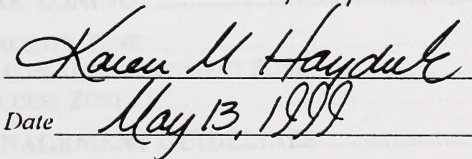 Karen M Hayduk
Date May 13, 1999